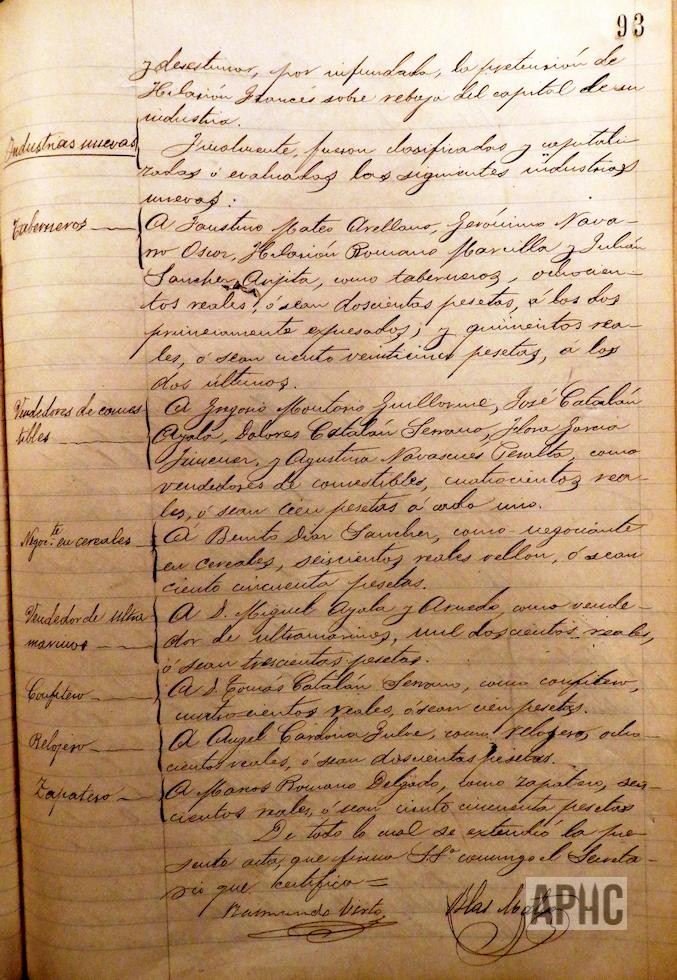 93
y desestimar, por infundada, la pretensión de
Hilarión Francés sobre rebaja del capital de su
industria.
Industrias nuevas
Finalmente, fueron clasificadas y capitali-
zadas ó evaluadas las siguientes industrias
nuevas:
Taberneros
A Faustino Mateo Arellano, Gerónimo Nava-
rro Oscor, Hilarión Romano Marcilla y Julián
Sanchez Anjita, como taberneros, ochocien-
tos reales, ó sean doscientas pesetas, á los dos
primeramente expresados; y quinientos rea-
les, ó sean ciento veinticinco pesetas, á los
dos últimos.
Vendedores de comes
tibles
A Gregorio Montorio Guillorme, José Catalán
Ayala, Dolores Catalán Serrano, Flora Garcia
Jimenez, y Agustina Navascues Peralta, como
vendedores de comestibles, cuatrocientos rea-
les, ó sean cien pesetas á cada uno.
Negoc.te en cereales
A Benito Diaz Sanchez, como negociante
en cereales, seiscientos reales vellon, ó sean
ciento cincuenta pesetas.
Vendedor de ultra
marinos
A D. Miguel Ayala y Arnedo, como vende-
dor de ultramarinos, mil doscientos reales,
ó sean trescientas pesetas.
Confitero
A D. Tomás Catalán Serrano, como confitero,
cuatrocientos reales, ó sean cien pesetas.
Relojero
A Angel Cardona Gulve, como relojero, ocho-
cientos reales, ó sean doscientas pesetas.
Zapatero
A Manos Romano Delgado, como zapatero, seis-
cientos reales, ó sean ciento cincuenta pesetas
De todo lo cual se extendió la pre-
sente acta, que firma S.Sª conmigo el Secreta-
rio que certifico =
Raimundo Virto
Blas
APHC